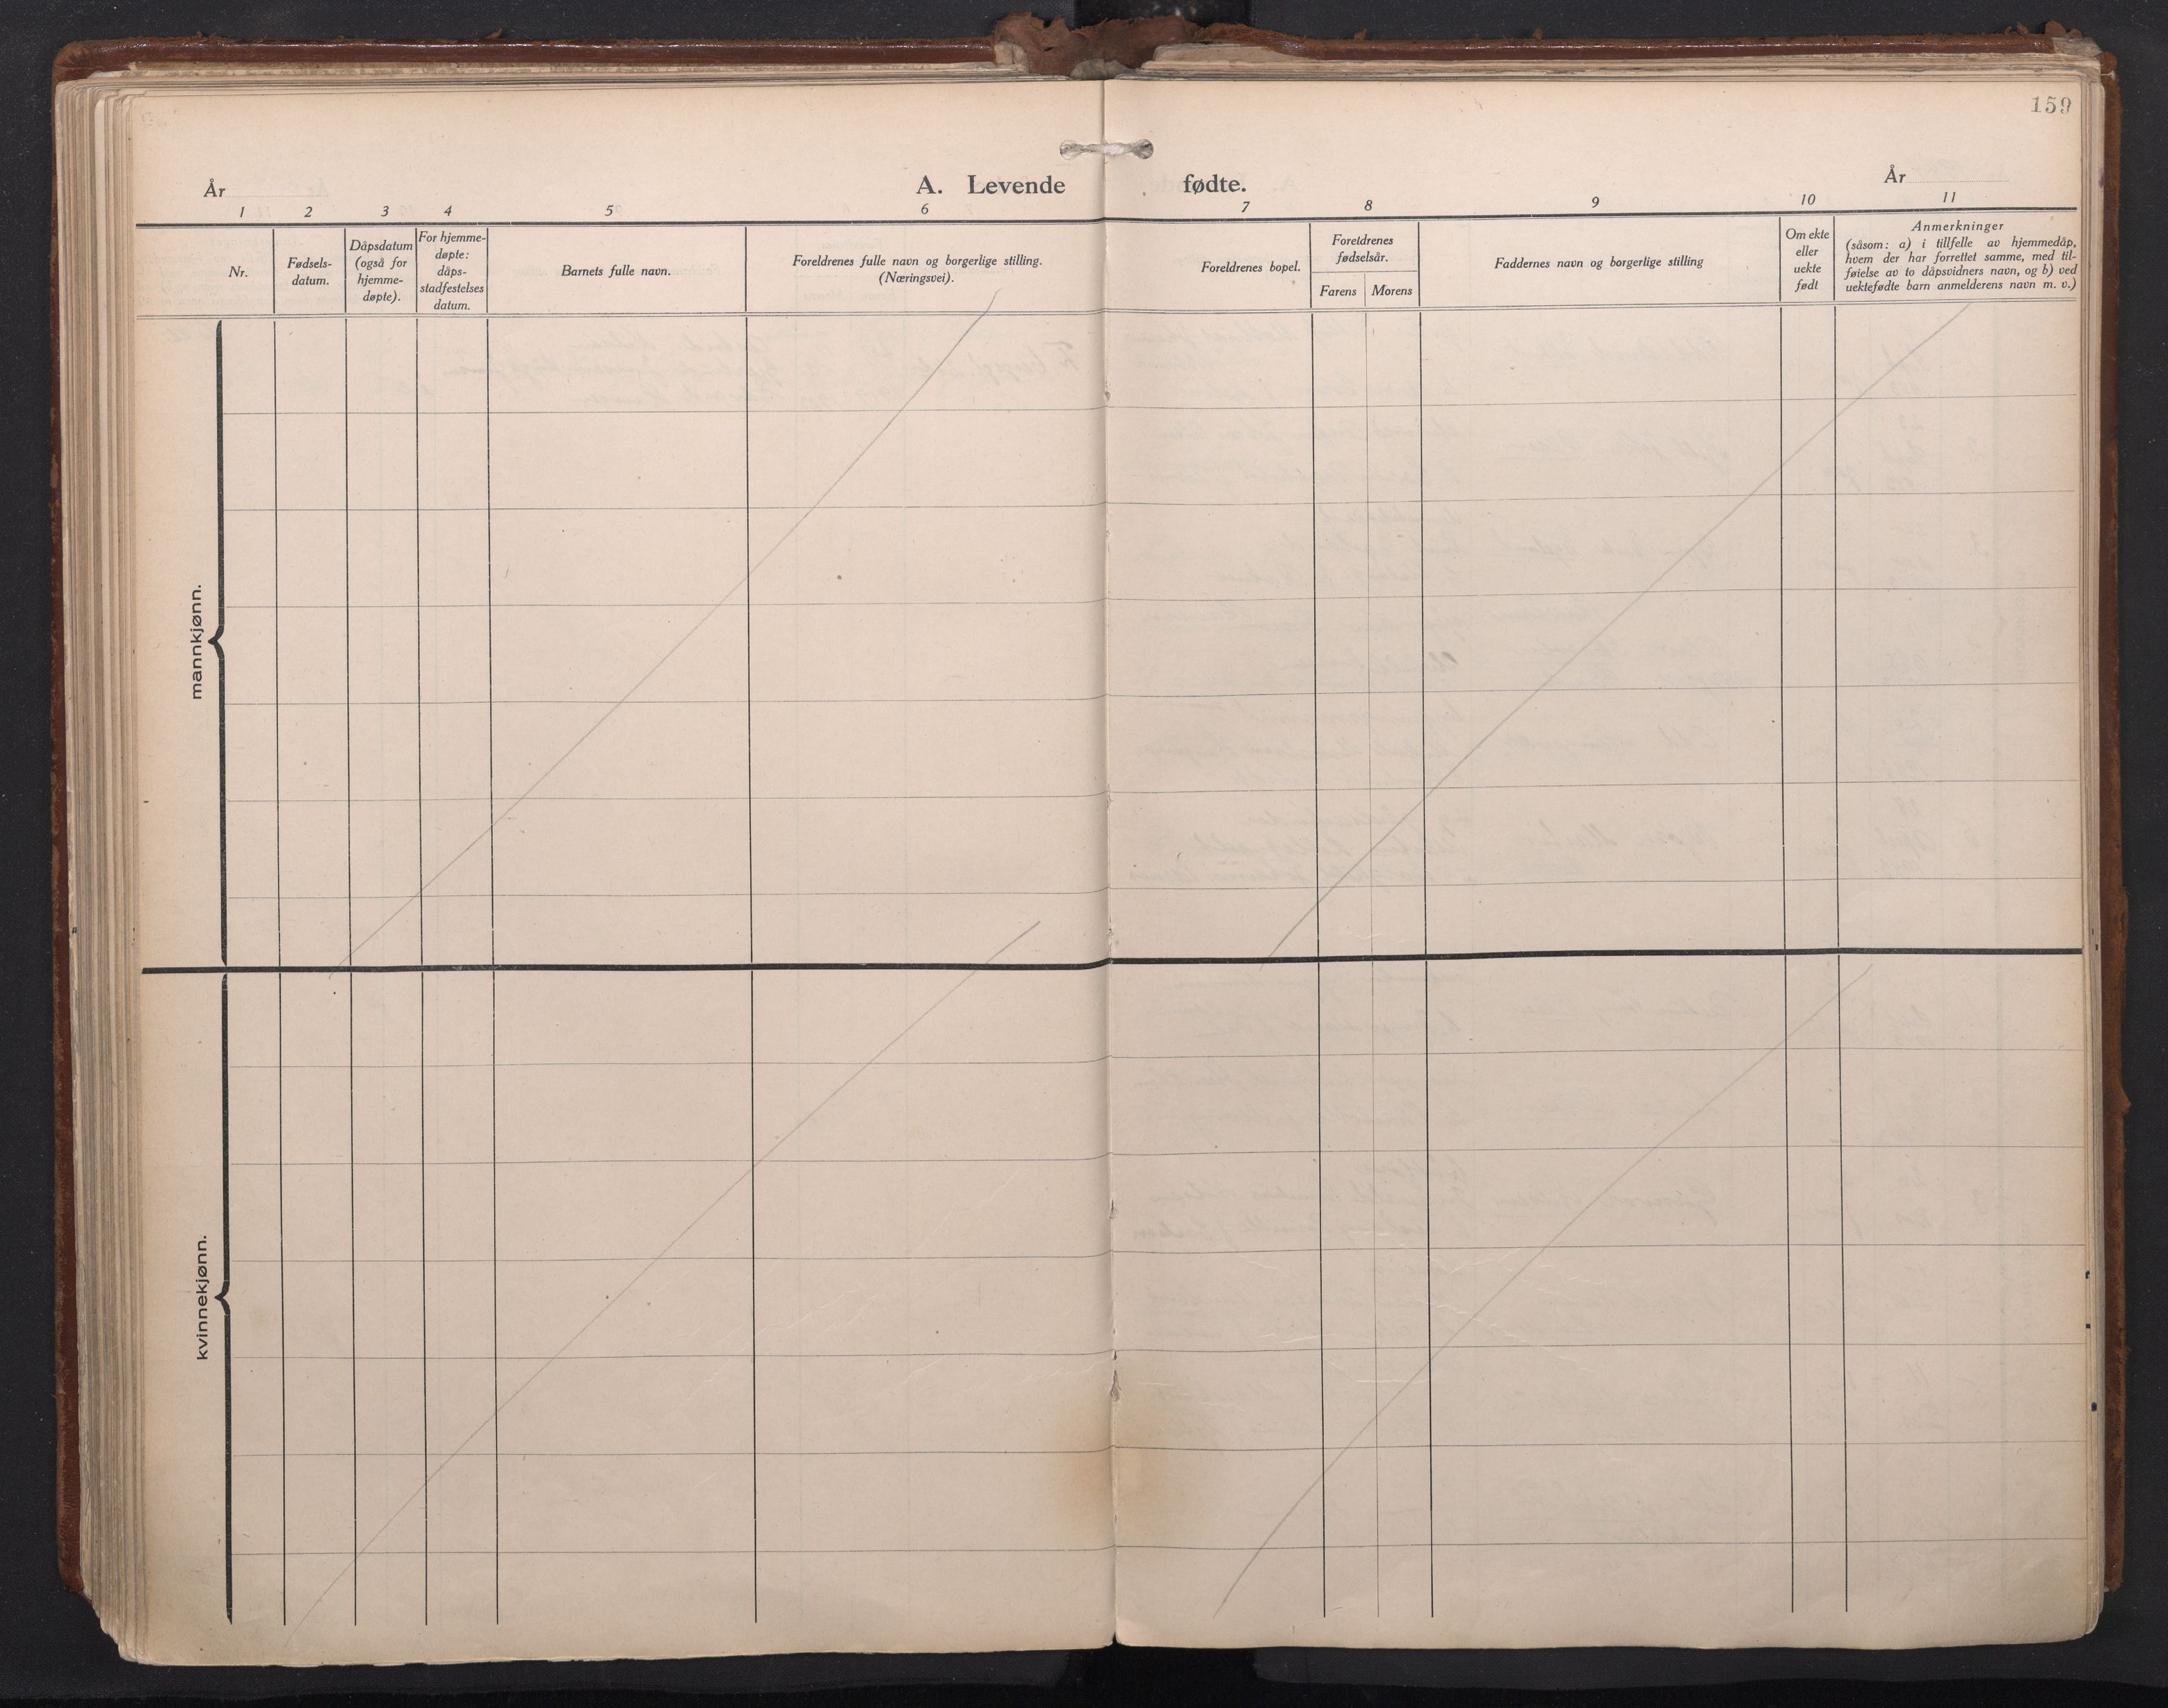 159
År
A. Levende fødte.
År
1 2 3 4 5 6 7 8 9 10 11
Nr.
Fødsels-
datum.
Dåpsdatum
(også for
hjemme-
døpte).
For hjemme-
døpte:
dåps-
stadfestelses
datum.
Barnets fulle navn.
Foreldrenes fulle navn og borgerlige stilling.
(Næringsvei).
Foreldrenes bopel.
Foreldrenes
fødselsår.
Farens
Morens
Faddernes navn og borgerlige stilling
Om ekte
eller
uekte
født
Anmerkninger
(såsom: a) i tillfelle av hjemmedåp,
hvem der har forrettet samme, med til-
føielse av to dåpsvidners navn, og b) ved
uektefødte barn anmelderens navn m. v.)
mannkjønn.
kvinnekjønn.